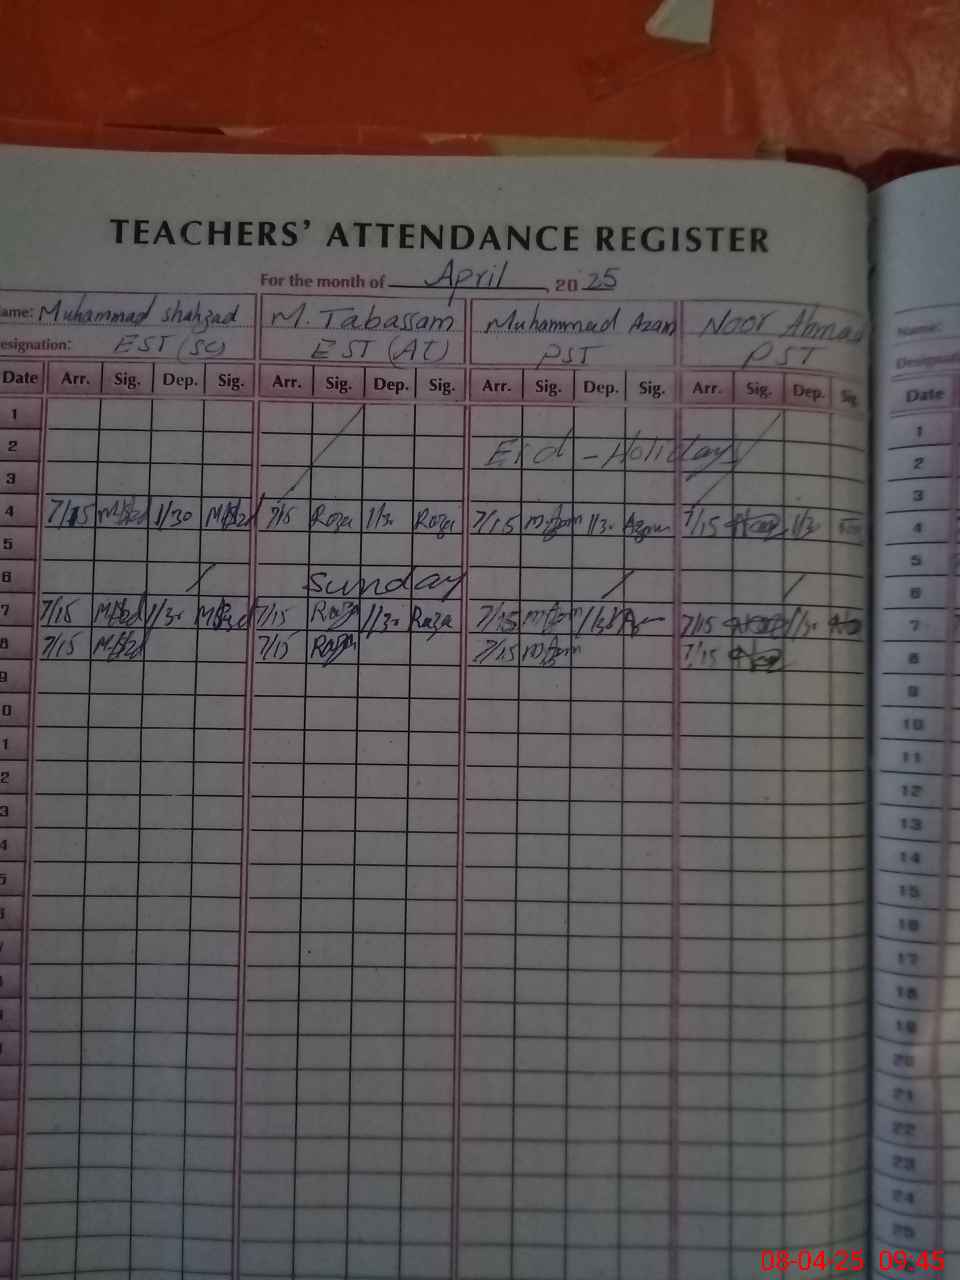 TEACHERS' ATTENDANCE REGISTER
For the month of April, 2025
ame: Muhammad Shahzad M. Tabassam Muhammad Azam Noor Ahmad Name:
esignation: EST (SC) EST (AT) PST PST Designati
Date Arr. Sig. Dep. Sig. Arr. Sig. Dep. Sig. Arr. Sig. Dep. Sig. Arr. Sig. Dep. Sig. Date
1 1
2 Eid - Holidays 2
3 3
4 7/15 1/30 7/15 Roza 1/30 Roza 7/15 1/30 Azam 7/15 1/30 4
5 5
6 Sunday 6
7 7/15 1/30 7/15 Roza 1/30 Raza 7/15 1/30 7/15 1/30 7
8 7/15 7/15 7/15 7/15 8
9 9
0 10
1 11
2 12
3 13
4 14
5 15
16
17
18
19
20
21
22
23
24
25
08-04-25 09:45